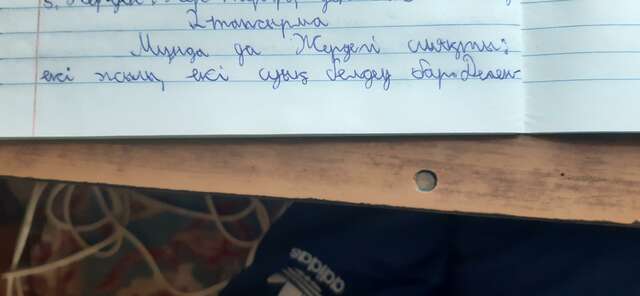 2-тапсырма
Мұнда да Жердегі сияқты:
екі жылы, екі суық белдеу бар. Делек
adidas